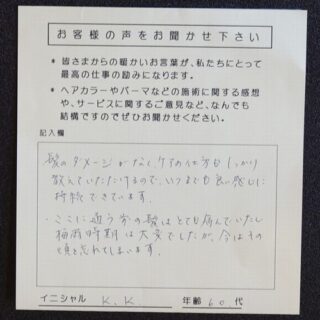 お客様の声をお聞かせ下さい
* 皆さまからの暖かいお言葉が、私たちにとって
最高の仕事の励みになります。
* ヘアカラーやパーマなどの施術に関する感想
や、サービスに関するご意見など、なんでも
結構ですのでぜひお聞かせください。
記入欄
髪のダメージがなく、ケアの仕方もしっかり
教えていただけるので、いつまでも良い感じに
持続できています。
・ここに通う前の髪はとても傷んでいたし
梅雨時期は大変でしたが、今はその
頃を忘れてしまいます。
イニシャル K.K 年齢 60.代